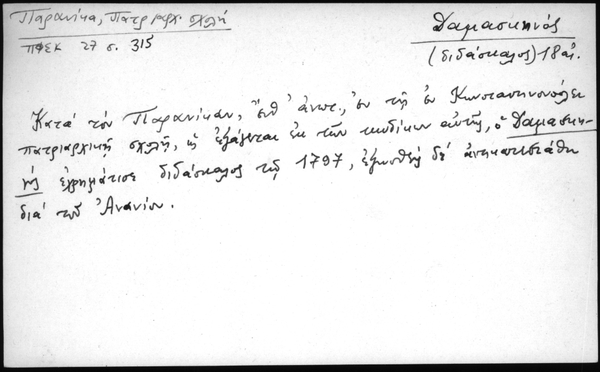 Παρανίκα, Πατριαρχ. σχολή
ΠΦΕΚ 27 σ. 315
Δαμασκηνός
(διδάσκαλος) 18 αἰ.
Κατά τόν Παρανίκαν, ἔνθ' ἀνωτ., ἐν τῇ ἐν Κωνσταντινουπόλει
πατριαρχικῇ σχολῇ, ὡς ἐξάγεται ἐκ τῶν κωδίκων αὐτῆς, ὁ Δαμασκη-
νός ἐχρημάτισε διδάσκαλος τῷ 1797, ἐξωσθείς δέ ἀντικατεστάθη
διά τοῦ Ἀνανίου.